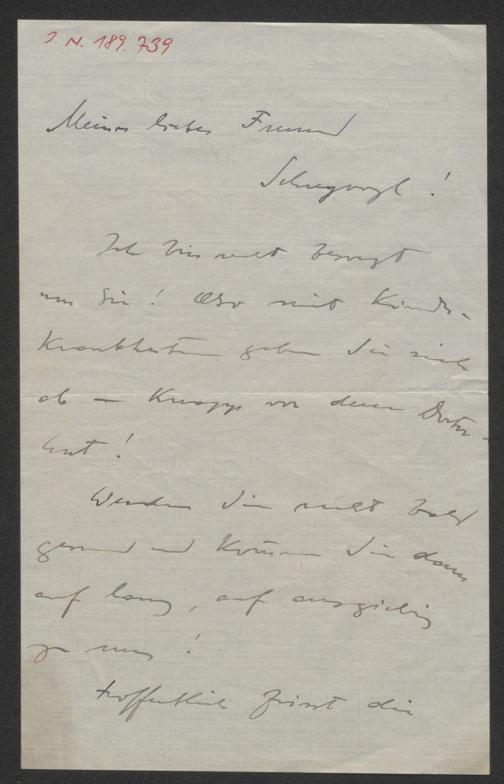 J. N. 189.739
Meines lieber Freund
!
Ich bin recht besorgt
um Sie! Also mit Kinder-
Krankheiten geben Sie sich
ab — Knapp vor dem Doktor-
hut!
Werden Sie recht bald
gesund und kommen Sie dann
auf lang, auf ausgiebig
zu uns!
Hoffentlich die